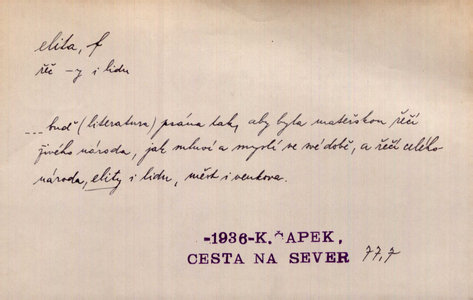 elita, f
řeč -y i lidu
... buď (literatura) psána tak, aby byla mateřskou řečí
živého národa, jak mluví a myslí ve své době, a řečí celého
národa, elity i lidu, měst i venkova.
-1936-K. ČAPEK,
CESTA NA SEVER 77,7